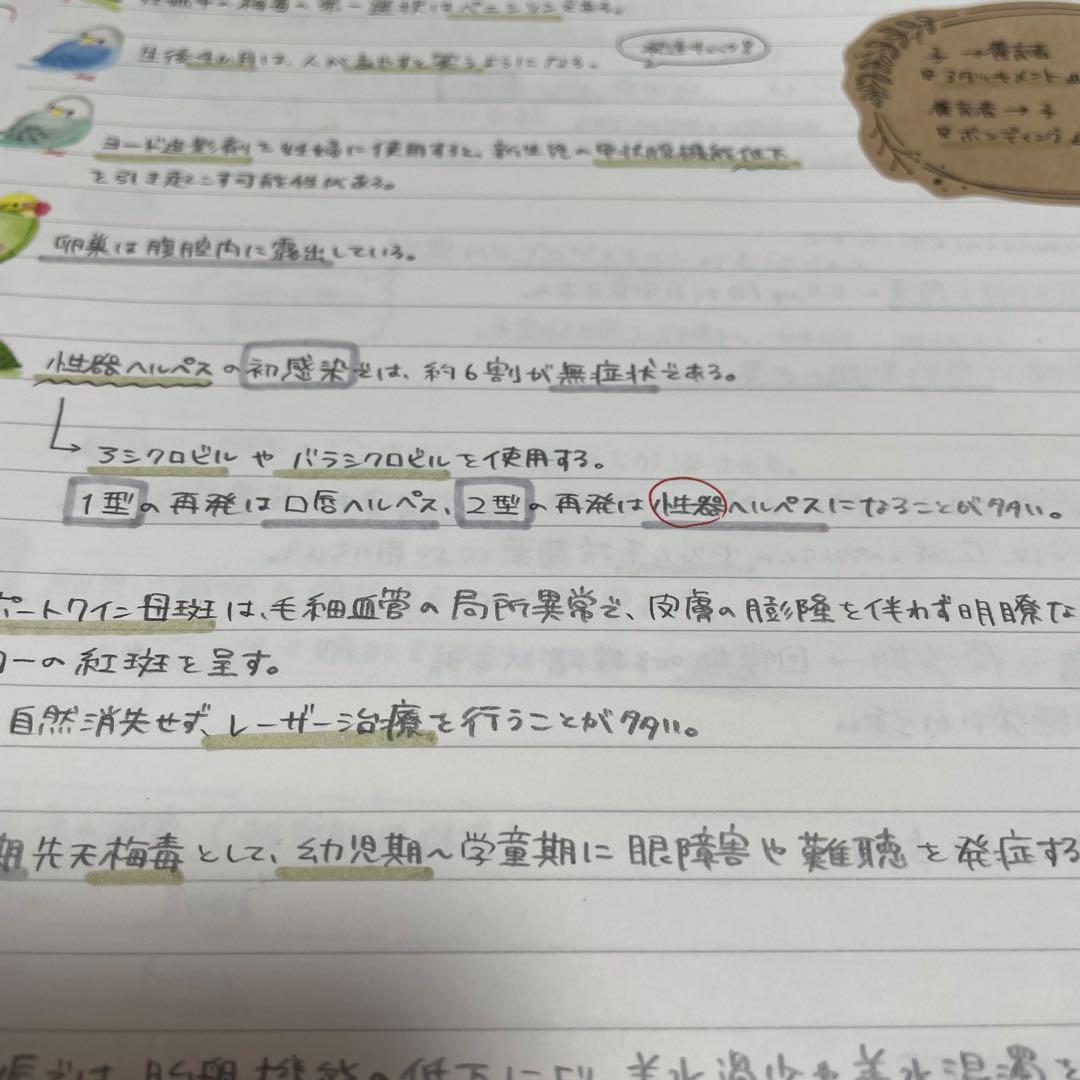 梅毒の第一選択はペニシリンである。
生後4か月は、人があやすと笑うようになる。
子 → 養育者
アタッチメント
養育者 → 子
ボンディング
ヨード造影剤を妊婦に使用すると、新生児の甲状腺機能低下
を引き起こす可能性がある。
卵巣は腹腔内に露出している。
性器ヘルペスの初感染では、約6割が無症状である。
アシクロビルやバラシクロビルを使用する。
1型の再発は口唇ヘルペス、2型の再発は性器ヘルペスになることが多い。
ポートワイン母斑は、毛細血管の局所異常で、皮膚の膨隆を伴わず明瞭な
一の紅斑を呈す。
自然消失せず、レーザー治療を行うことが多い。
期先天梅毒として、幼児期〜学童期に眼障害や難聴を発症する
では、胎盤機能の低下により、羊水過少や羊水混濁を